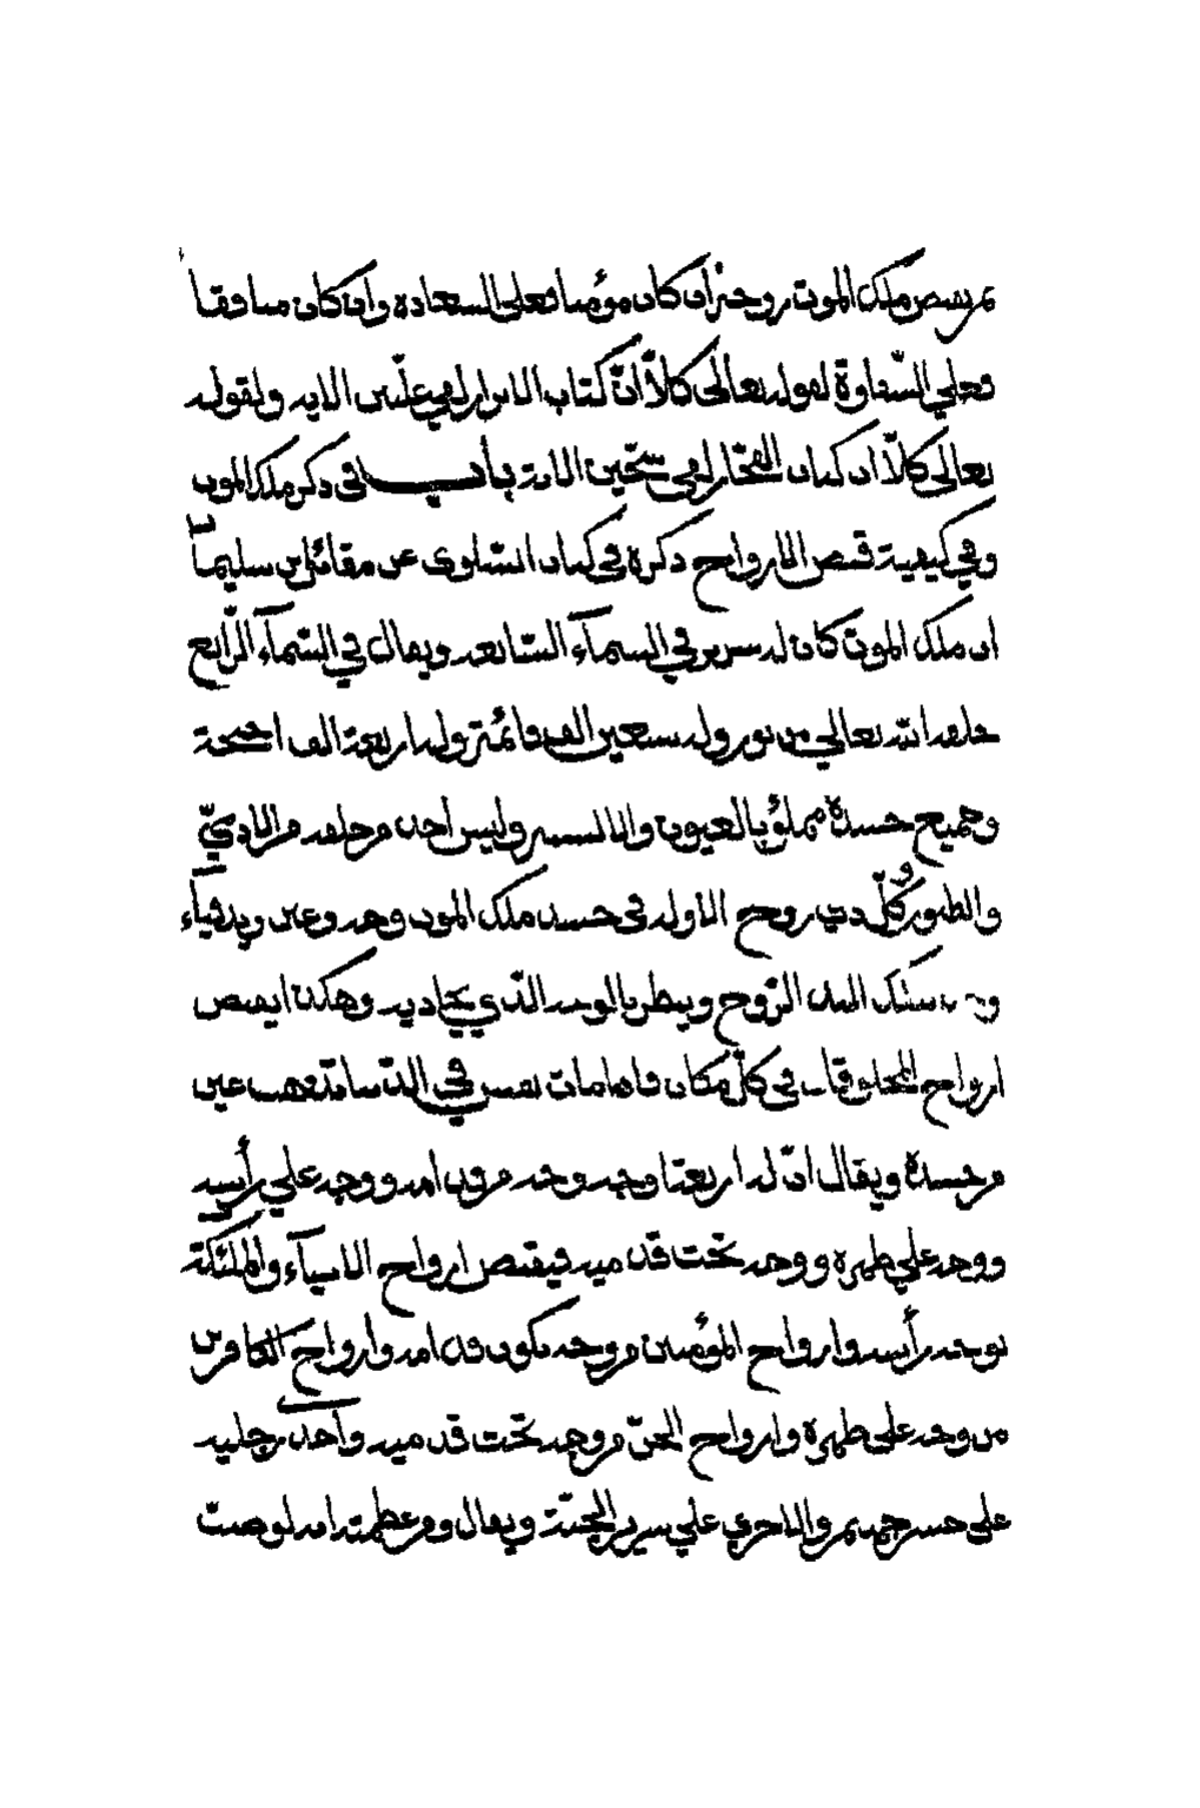 ثم يقبض ملك الموت روحه ان كان مؤمنا فعلى السعادة وان كان منافقا
فعلي الشّقاوة لقوله تعالى كلاّ انّ كتاب الابرار لفي علّيين الاية ولقوله
تعالى كلاّ ان كتاب الفجّار لفي سجّين الاية باب في ذكر ملك الموت
وفي كيفية قبض الارواح ذكره في كتاب السّلوى عن مقاتل بن سليمان
ان ملك الموت كان له سرير في السمآء السّابعة ويقال في السّمآء الرّابع
خلقه الله تعالي من نور وله سبعين الف قائمة وله اربعة الف اجنحة
وجميع جسده مملؤ بالعيون والالسنة وليس احد من خلقه من الادميّ
والطيور وكلّ ذي روح الا وله في جسد ملك الموت وجه وعين ويد
الرّوح وينظر بالوجه الّذي يحاذيه وهكذا يقبض
ارواح المخلوقات في كلّ مكان فاذا مات نفس في الدّنيا تذهب عين
من جسده ويقال انّ له اربعة اوجه وجه من قدّامه ووجه علي رأسه
ووجه علي ظهره ووجه تحت قدميه فيقبض ارواح الانبيآء والملئكة
بوجه رأسه وارواح المؤمنين من وجه يكون قدّامه وارواح الكافرين
من وجه على ظهره وارواح الجنّ من وجه تحت قدميه واحد رجليه
على جسر جهنم والاخري علي سرير الجنّة ويقال ومن عظمته انه لو صبت